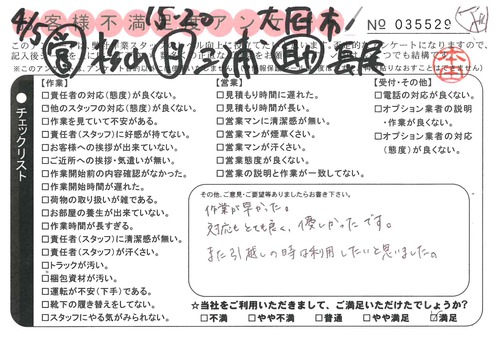 4/5 15-20 大田市
No 035529
本
【作業】
□責任者の対応(態度)が良くない。
□他のスタッフの対応(態度)が良くない。
□作業を見ていて不安がある。
□責任者(スタッフ)に好感が持てない。
□お客様への挨拶が出来ていない。
□ご近所への挨拶・気遣いが無い。
□作業開始前の内容確認がなかった。
□作業開始時間が遅れた。
□荷物の取り扱いが雑である。
□お部屋の養生が出来ていない。
□作業時間が長すぎる。
□責任者(スタッフ)に清潔感が無い。
□責任者(スタッフ)が汗くさい。
□トラックが汚い。
□梱包資材が汚い。
□運転が不安(下手)である。
□靴下の履き替えをしてない。
□スタッフにやる気がみられない。
【営業】
□見積もり時間に遅れた。
□見積もり時間が長い。
□営業マンに清潔感が無い。
□営業マンが煙草くさい。
□営業マンが汗くさい。
□営業態度が良くない。
□営業の説明と作業が一致してない。
【受付・その他】
□電話の対応が良くない。
□オプション業者の説明
・作業が良くない。
□オプション業者の対応
(態度)が良くない。
チェックリスト
その他、ご意見・ご要望等ありましたらお書き下さい。
作業が早かった。
対応もとても良く、優しかったです。
また引越しの時は利用したいと思いました。
☆当社をご利用いただきまして、ご満足いただけたでしょうか?
□不満 □やや不満 □普通 □やや満足 □満足